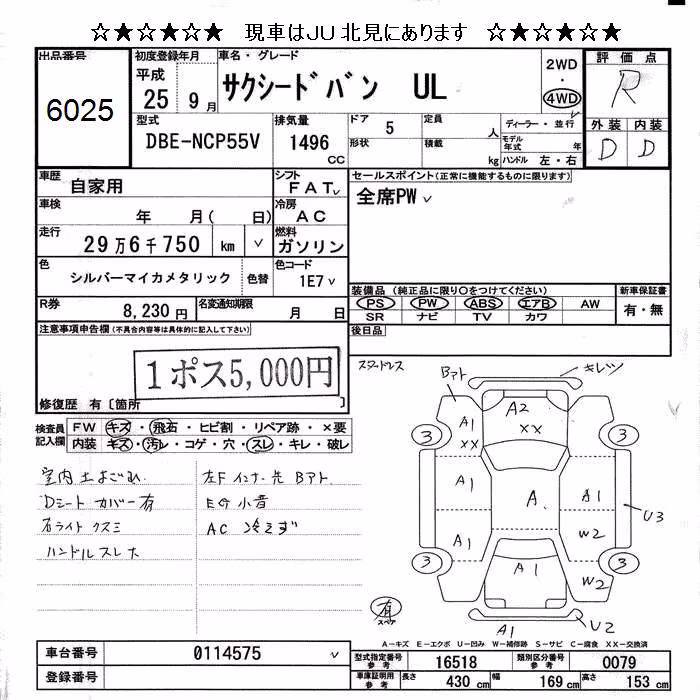 ☆★☆★☆★ 現車はJU北見にあります ☆★☆★☆★
出品番号
6025
初度登録年月
平成
25 9月
車名・グレード
サクシードバン UL
2WD
・
4WD
評価点
R
外装 内装
D D
型式
DBE-NCP55V
排気量
1496
cc
ドア 5
形状
定員 人
積載 kg
ディーラー・並行
モデル年式 年
ハンドル 左・右
車歴 自家用
シフト
FAT
車検 年 月( 日)
冷房
AC
走行 29万6千750 km
燃料
ガソリン
色 シルバーマイカメタリック 色替
色コード
1E7
R券 8,230円
名変通知期限 月 日
セールスポイント(正常に機能するものに限ります)
全席PW
装備品 (純正品に限り○をつけてください)
PS PW ABS エアB AW
SR ナビ TV カワ
新車保証書
有・無
後日品
注意事項申告欄(不具合内容等は具体的に記入して下さい)
1ポス5,000円
修復歴 有〔箇所 〕
検査員記入欄
FW キズ・飛石・ヒビ割・リペア跡・×要
内装 キズ・汚レ・コゲ・穴・スレ・キレ・破レ
室内 土よごれ
Dシート カバー有
右ライト クスミ
ハンドルスレ大
左Fインナー先 Bアト
Eg 小音
AC 冷えず
スタッドレス
Bアト
キレツ
A1
XX
A2
XX
3
3
A1
A
A1
U3
A1
A1
W2
3
3
W2
有
スペア
A1
U2
A-キズ E-エクボ U-凹み W-補修跡 S-サビ C-腐食 XX-交換済
車台番号 0114575
登録番号
型式指定番号 参考 16518
類別区分番号 参考 0079
車庫証明用 参考
長さ 430 cm 幅 169 cm 高さ 153 cm